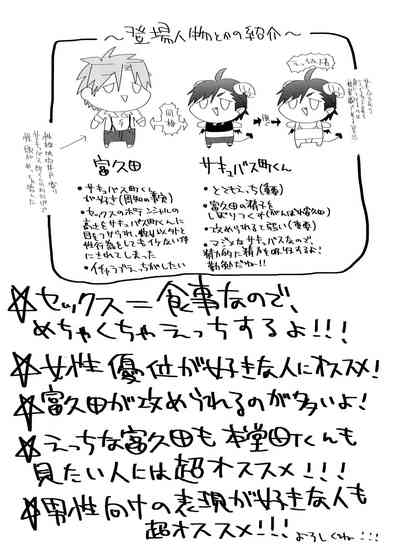 ～登場人物とかの紹介～
富久田
・サキュバス町くん
が好き(周知の事実)
・セックスのポテンシャルの
高さをサキュバス町くんに
目をつけられ、彼以外と
性行為をしてもイケない体
にされてしまった
・イチャラブえっちがしたい
同棲
えっちの時
サキュバス町くん
・とてもえっち(事実)
・富久田の精子を
しぼりつくす(がんばれ富久田)
・攻められると弱い(事実)
・マジメなサキュバスなので、
☆セックス＝食事なので、
めちゃくちゃえっちするよ!!!
☆女性優位が好きな人にオススメ!
☆富久田が攻められるのが多いよ!
☆えっちな富久田も本堂町くんも
見たい人には超オススメ!!!
☆男性向けの表現が好きな人も
超オススメ!!!
よろしくね…!!!